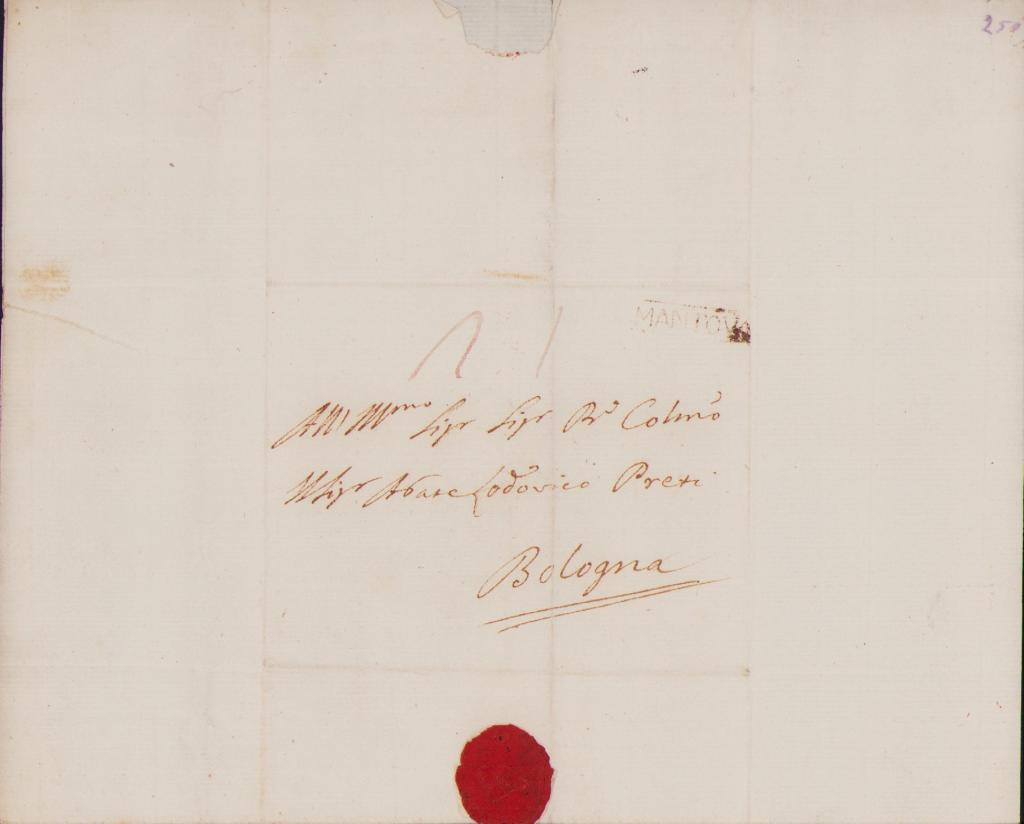 250
MANTOVA
All Illmo Sigr Sigr Pre Colmo
Il Sigr Abate Lodovico Preti
Bologna